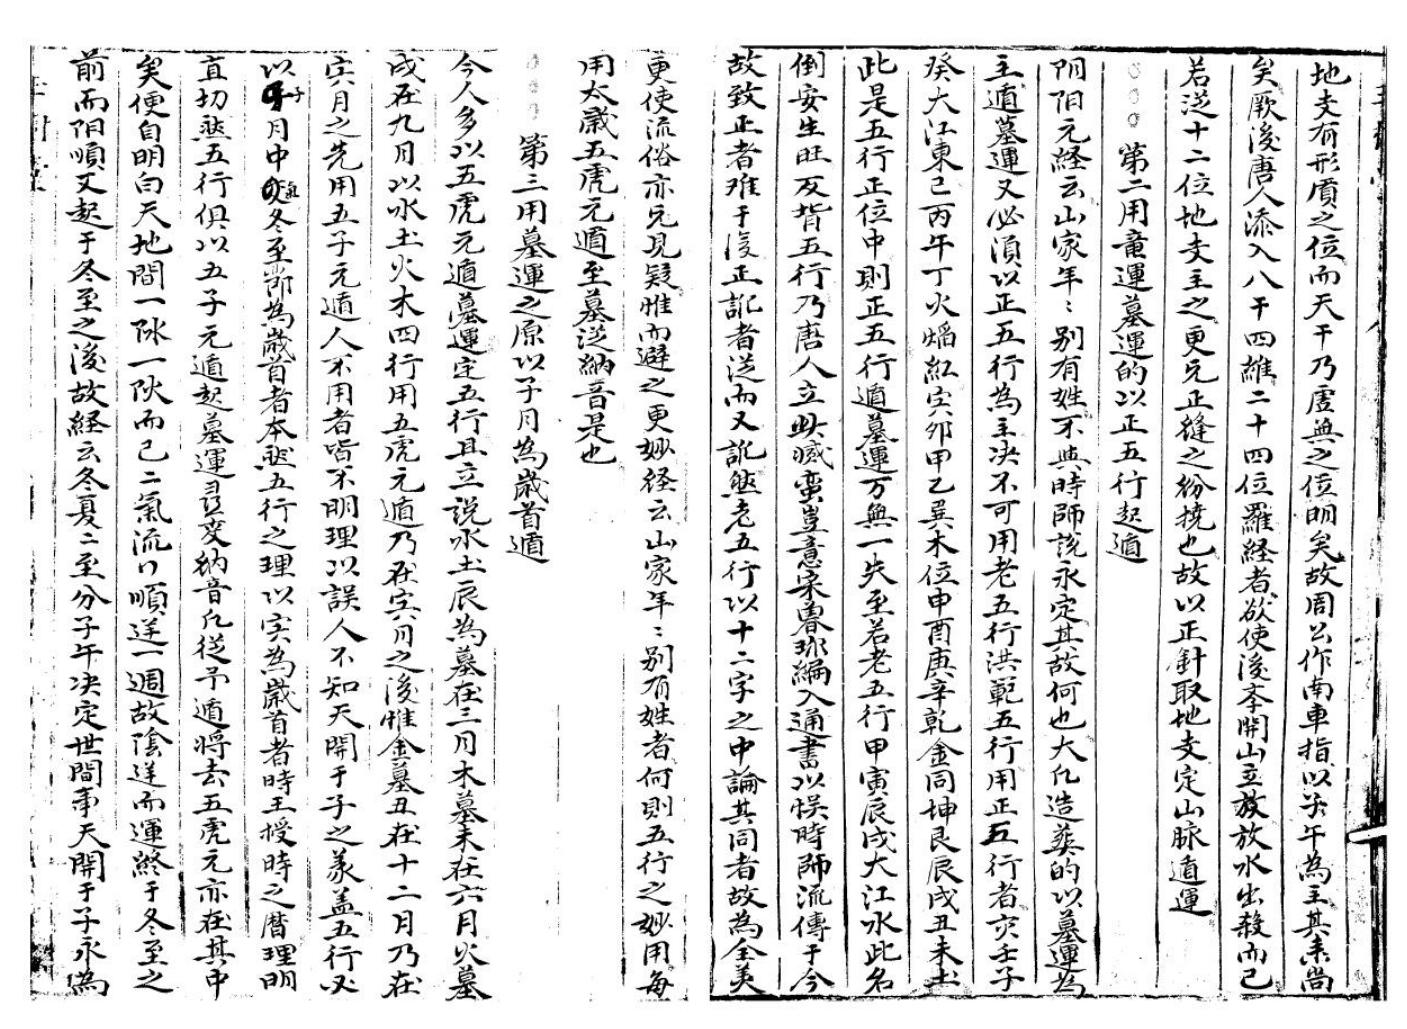 地支有形質之位而天干乃虛無之位明矣故周公作南車指以子午為主其来尚
矣厥後唐人添入八干四維二十四位羅経者欲使後李開山立放放水出殺而已
若泛十二位地支主之更元正縫之紛撓也故以正針取地支定山脉遁運
○○○第二用竜運墓運的以正五行起遁
阴阳元経云山家年〻别有姓不與時師說永定其故何也大凡造葬的以墓運為
主遁墓運又必須以正五行為主决不可用老五行洪範五行用正五行者亥壬子
癸大江東已丙午丁火焰紅寅卯甲乙巽木位申酉庚辛乾金同坤艮辰戌丑未土
此是五行正位中則正五行遁墓運万無一失至若老五行甲寅辰戌大江水此名
倒安生旺反背五行乃唐人立此㓕蛮豈意宋魯珎編入通書以悮時師流傳于今
故致正者难于復正訛者泛而又訛然老五行以十二字之中論其同者故為全美
更使流俗亦元見疑惟而避之更妙経云山家年〻别有姓者何則五行之妙用每
用太歲五虎元遁至墓泛納音是也
○○○第三用墓運之原以子月為歲首遁
今人多以五虎元遁墓運定五行且立説水土辰為墓在三月木墓未在六月火墓
戌在九月以水土火木四行用五虎元遁乃在寅月之後惟金墓丑在十二月乃在
寅月之先用五子元遁人不用者皆不明理以誤人不知天開于子之義盖五行必
以子月中氣冬至節為歲首者本然五行之理以寅為歲首者時王授時之暦理明
直切然五行俱以五子元遁起墓運且变納音凡從予遁將去五虎元亦在其中
矣便自明白天地間一陈一陕而已二氣流行順逆一週故陰逆而運終于冬至之
前而阳順又起于冬至之後故経云冬夏二至分子午决定世間事天開于子永為